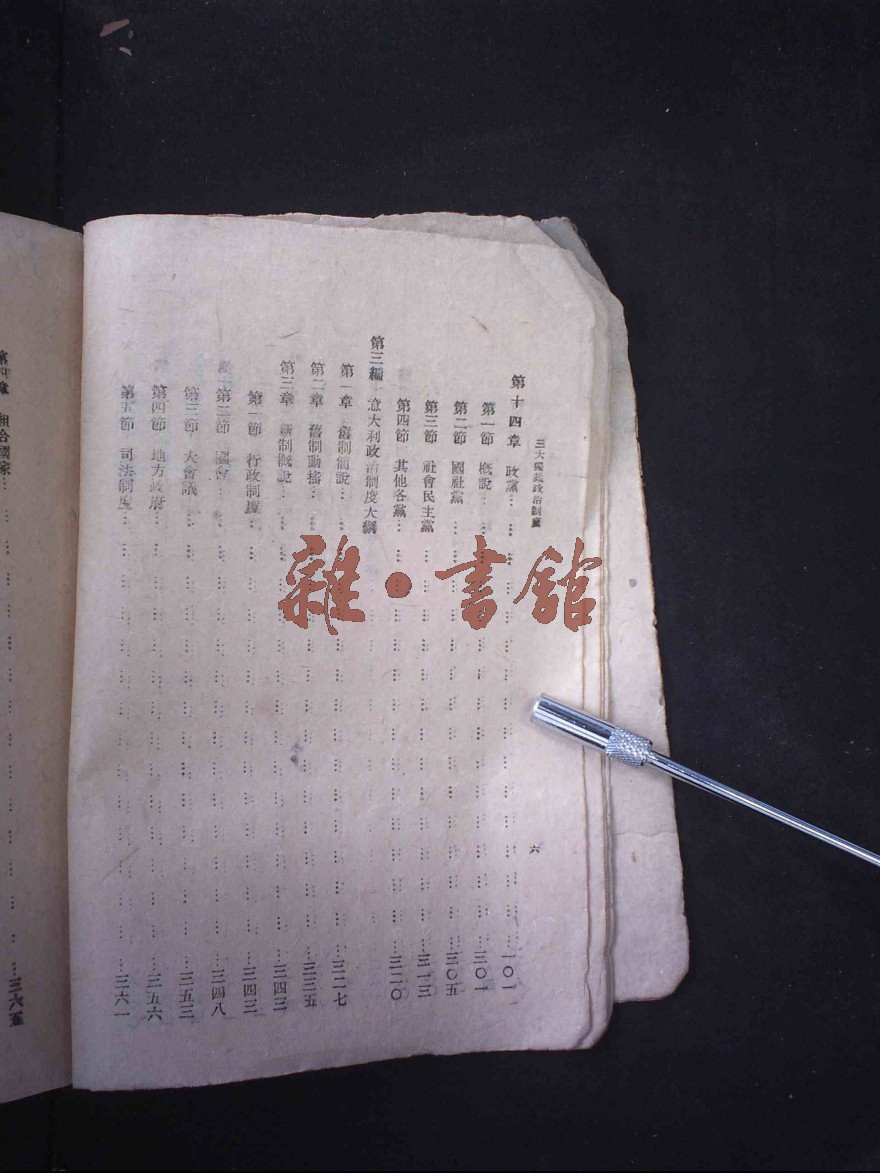 三大獨裁政治制度
六
第十四章 政黨……三〇一
第一節 概說……三〇一
第二節 國社黨……三〇五
第三節 社會民主黨……三一三
第四節 其他各黨……三二〇
第三編 意大利政治制度大綱
第一章 舊制簡說……三二七
第二章 舊制動搖……三三五
第三章 新制概說……三四三
第一節 行政制度……三四三
第二節 國會……三四八
第三節 大會議……三五三
第四節 地方政府……三五六
第五節 司法制度……三六一
第四章 組合國家……三六五
雜·書館